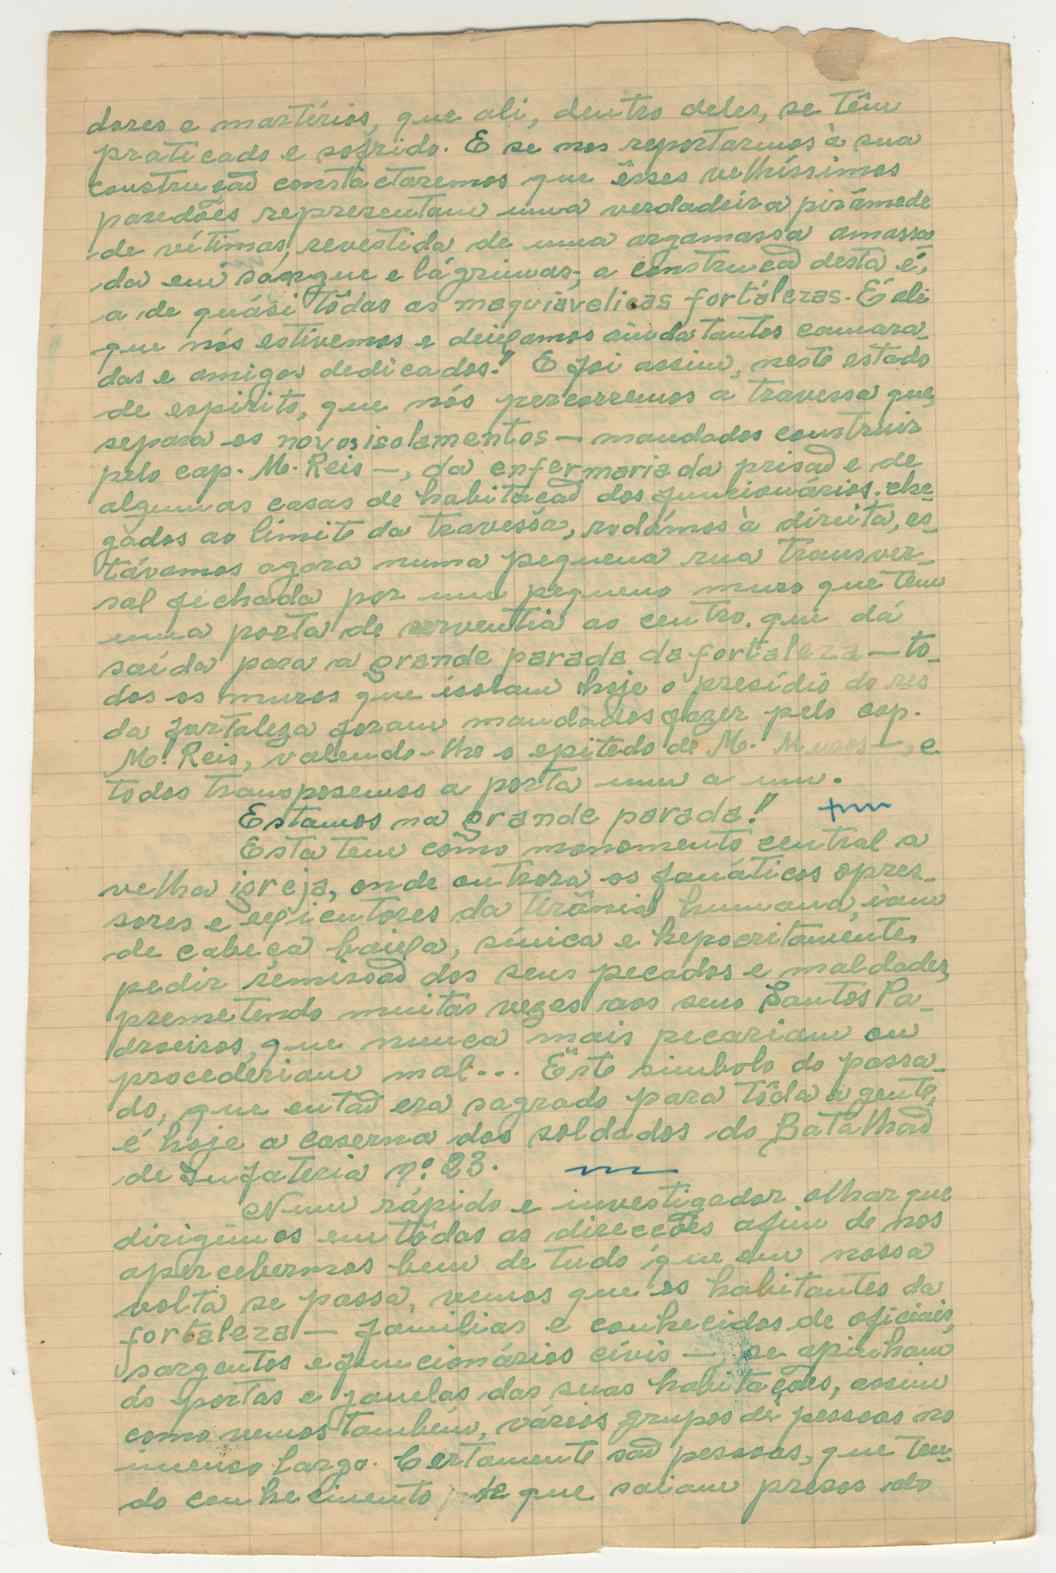 dores e martírios, que ali, dentro deles, se têm
praticado e sofrido. E se nos reportarmos à sua
construção constactaremos que êsses velhíssimos
paredões representam uma verdadeira pirâmede
de vítimas, revestida de uma argamassa amassa
da em sangue e lágrimas; a construção desta é,
a de quási tôdas as maquiavelicas fortálezas. É ali
que nós estivemos e deixamos ainda tantos camara-
das e amigos dedicados!" E foi assim, neste estado
de espirito, que nós percorremos a travessa que,
separa os novos isolamentos — mandados construir
pelo cap. M. Reis —, da enfermaria da prisão e de
algumas casas de habitação dos funcionários. che-
gados ao limite da travessa, rodámos à direita, es-
távamos agora numa pequena rua transver-
sal fechada por um pequeno muro que têm
uma porta de serventia ao centro, que dá
saída para a grande parada da fortaleza — to-
dos os muros que isolam hoje o presídio do res
da fortaleza foram mandados fazer pelo cap.
M. Reis, valendo-lhe o epitedo de M. Muros —, e
todos transposemos a porta um a um.
Estamos na grande parada!"
Esta tem como monomento central a
velha igreja, onde outrora os fanáticos opres-
sores e exicutores da tirânia humana, iam
de cabeça baixa, sínica e hepocritamente,
pedir remissão dos seus pecados e maldades,
prometendo muitas vezes aos seus Santos Pa-
droeiros, que nunca mais pecariam ou
procederiam mal... Êste simbolo do passa-
do, que então era sagrado para tôda a gente,
é hoje a caserna dos soldados do Batalhão
de Infateria nº. 23.
Num rápido e investigador olhar que
dirigimos em tôdas as direcções afim de nos
apercebermos bem de tudo que em nossa
volta se passa, vemos que os habitantes da
fortaleza — familias e conhecidos de oficiais,
sargentos e funcionários civis —, se apinham
ás portas e janelas das suas habitações, assim
como vemos também, vários grupos de pessoas no
imenso largo. Certamente são pessoas, que ten-
do conhecimento de que saiam presos do